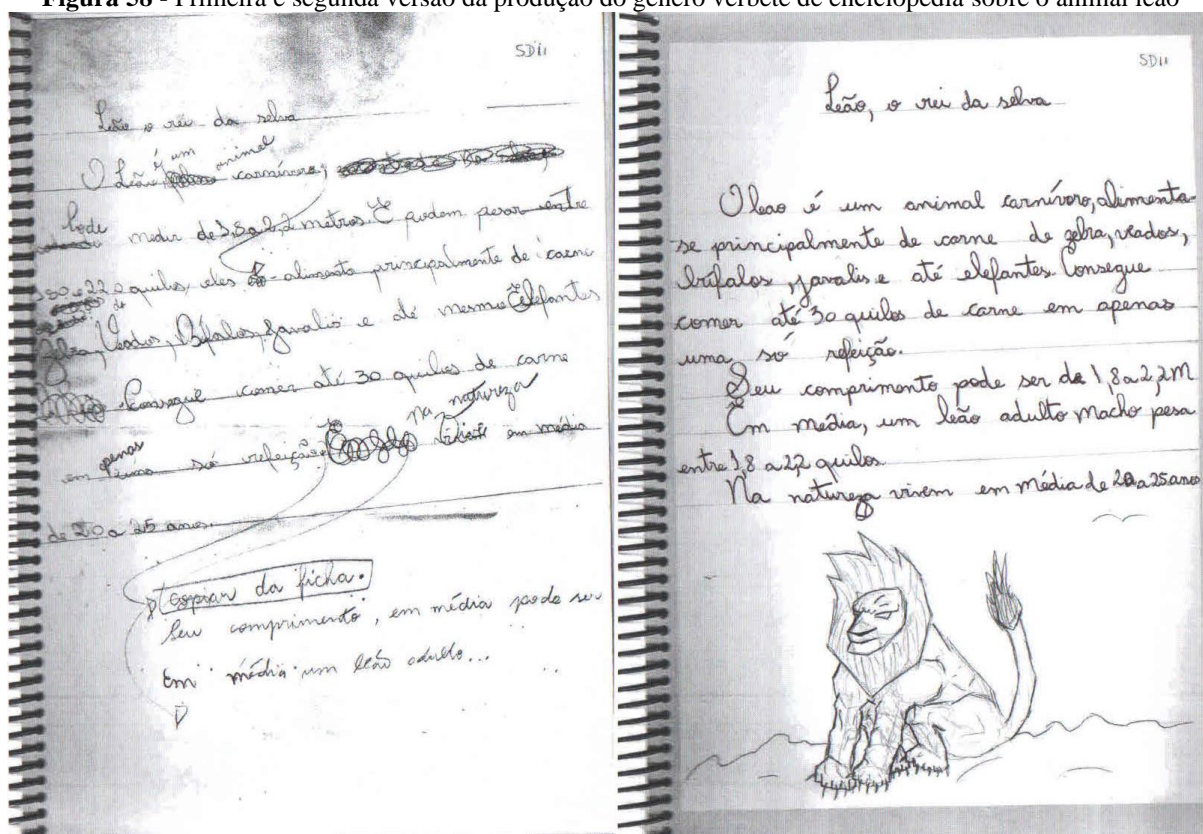 Figura 58 - Primeira e segunda versão da produção do gênero verbete de enciclopédia sobre o animal leão
SD11
Leão o rei da selva
é um animal
O Leão carnívoro,
Pode medir de 1,8 a 2,2 metros E podem pesar entre
150 e 220 quilos, eles alimenta principalmente de: carne
de
Zebra, Veados, Búfalos, Javalis e até mesmo Elefantes
Consegue comer até 30 quilos de carne
apenas na natureza
em uma só refeição. em média
de 20 a 25 anos.
Copiar da ficha.
Seu comprimento, em média pode ser
Em média um leão adulto...
SD11
Leão, o rei da selva
O leao é um animal carnívoro, alimenta-
se principalmente de carne de zebra, veados,
búfalos, javalis e até elefantes. Consegue
comer até 30 quilos de carne em apenas
uma só refeição.
Seu comprimento pode ser de 1,8 a 2,2M
Em média, um leão adulto macho pesa
entre 1,8 a 2,2 quilos
Na natureza vivem em média de 20 a 25 anos